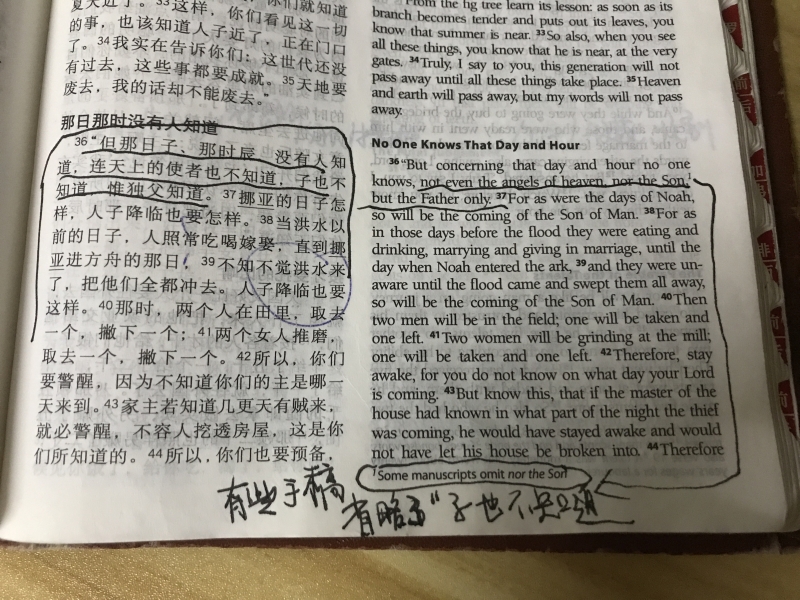 夏天近了。33这样，你们看见这一切
的事，也该知道人子近了，正在门口
了。34我实在告诉你们：这世代还没
有过去，这些事都要成就。35天地要
废去，我的话却不能废去。”
那日那时没有人知道
36“但那日子、那时辰，没有人知
道，连天上的使者也不知道，子也不
知道，惟独父知道。37挪亚的日子怎
样，人子降临也要怎样。38当洪水以
前的日子，人照常吃喝嫁娶，直到挪
亚进方舟的那日，39不知不觉洪水来
了，把他们全都冲去。人子降临也要
这样。40那时，两个人在田里，取去
一个，撇下一个；41两个女人推磨，
取去一个，撇下一个。42所以，你们
要警醒，因为不知道你们的主是哪一
天来到。43家主若知道几更天有贼来，
就必警醒，不容人挖透房屋，这是你
们所知道的。44所以，你们也要预备，
From the fig tree learn its lesson: as soon as its
branch becomes tender and puts out its leaves, you
know that summer is near. 33So also, when you see
all these things, you know that he is near, at the very
gates. 34Truly, I say to you, this generation will not
pass away until all these things take place. 35Heaven
and earth will pass away, but my words will not pass
away.
No One Knows That Day and Hour
36“But concerning that day and hour no one
knows, not even the angels of heaven, nor the Son,1
but the Father only. 37For as were the days of Noah,
so will be the coming of the Son of Man. 38For as
in those days before the flood they were eating and
drinking, marrying and giving in marriage, until the
day when Noah entered the ark, 39and they were un-
aware until the flood came and swept them all away,
so will be the coming of the Son of Man. 40Then
two men will be in the field; one will be taken and
one left. 41Two women will be grinding at the mill;
one will be taken and one left. 42Therefore, stay
awake, for you do not know on what day your Lord
is coming. 43But know this, that if the master of the
house had known in what part of the night the thief
was coming, he would have stayed awake and would
not have let his house be broken into. 44Therefore
1Some manuscripts omit nor the Son
有些手稿
省略了“子也不知道